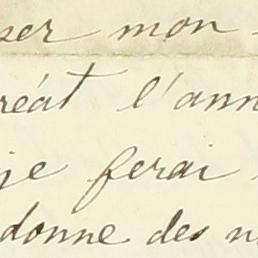 ser mon
réat l'ann
je ferai
donne des